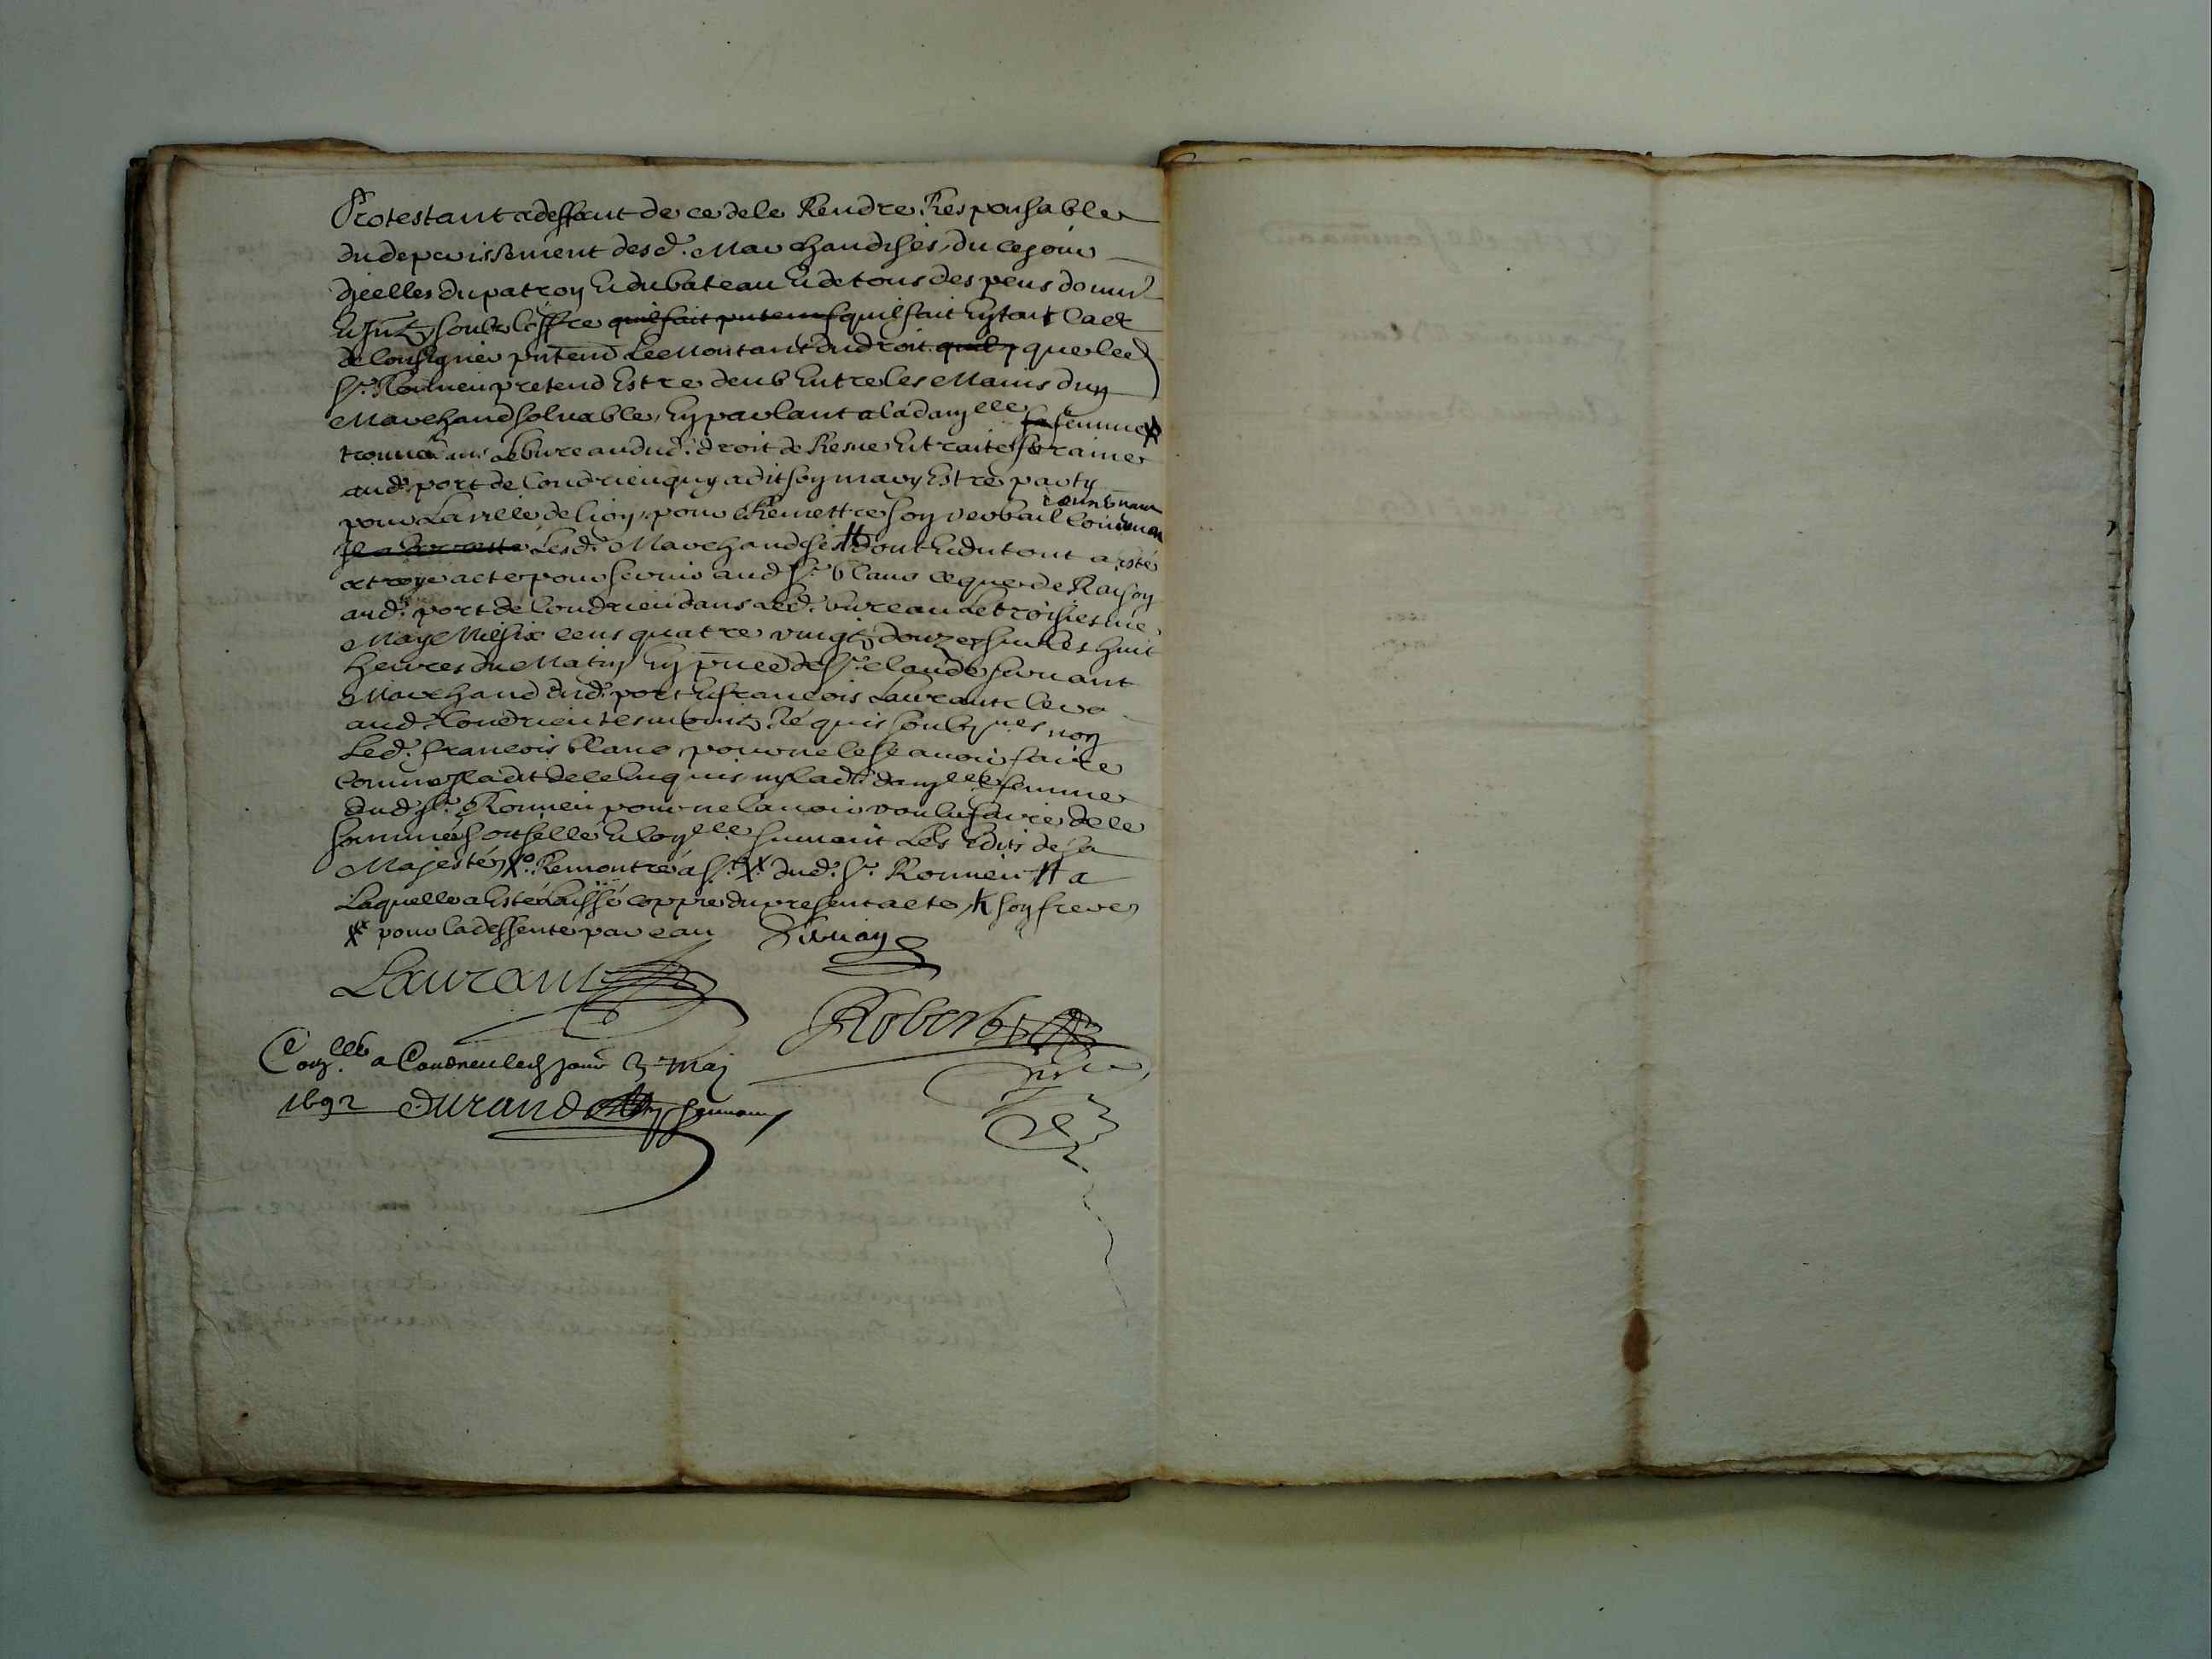 Protestant adeffaut de ce dele Rendre Responsable
du deperissement desd. Marchandises, du cejour
djcelles du patron Et du bateau Et de tous despens dom
Et soubz loffre quil fait quil fait Ey tant
de consigner le Montant du droit que led
Sr. Romieu pretend Estre deub Entre les Mains duy
Marchand solvable, Ey parlant a la damlle sa femme
trouvée dans le bureau dud. droit de Resve Et traite foraine
aud. port de Condrieu quy a dit soy mary Estre party
pour La ville de lioy pour Remettre soy verbail
Lesd. Marchandises dont Et du tout a esté
octroyé acte pour servir aud Sr. blanc ce que de Raisoy
aud. port de Condrieu dans Led. bureau Le troisiesme
May Mil six cens quatre vingtz douze sur les huit
heures du Matiy Ey pnce de Sr. claude
Marchand dud. port Et francois Laurant clerc
aud. Condrieu tesmoins Réquis soubznes noy
Led. francois blanc pour ne le scavoir faire
comme Jl a dit dele Enquis ny lad. damlle femme
dud Sr. Romieu pour ne lavoir voulu faire dele
sommée suivant Les Edits de sa
Majesté, Remontré a Sr. dud. Sr. Romieu a
Laquelle a Esté Laissé coppie du present acte soy frere
pour la dessente par eau
Laurant
Robert
Conlle a Condrieu led jour 3 May
1692 Durand